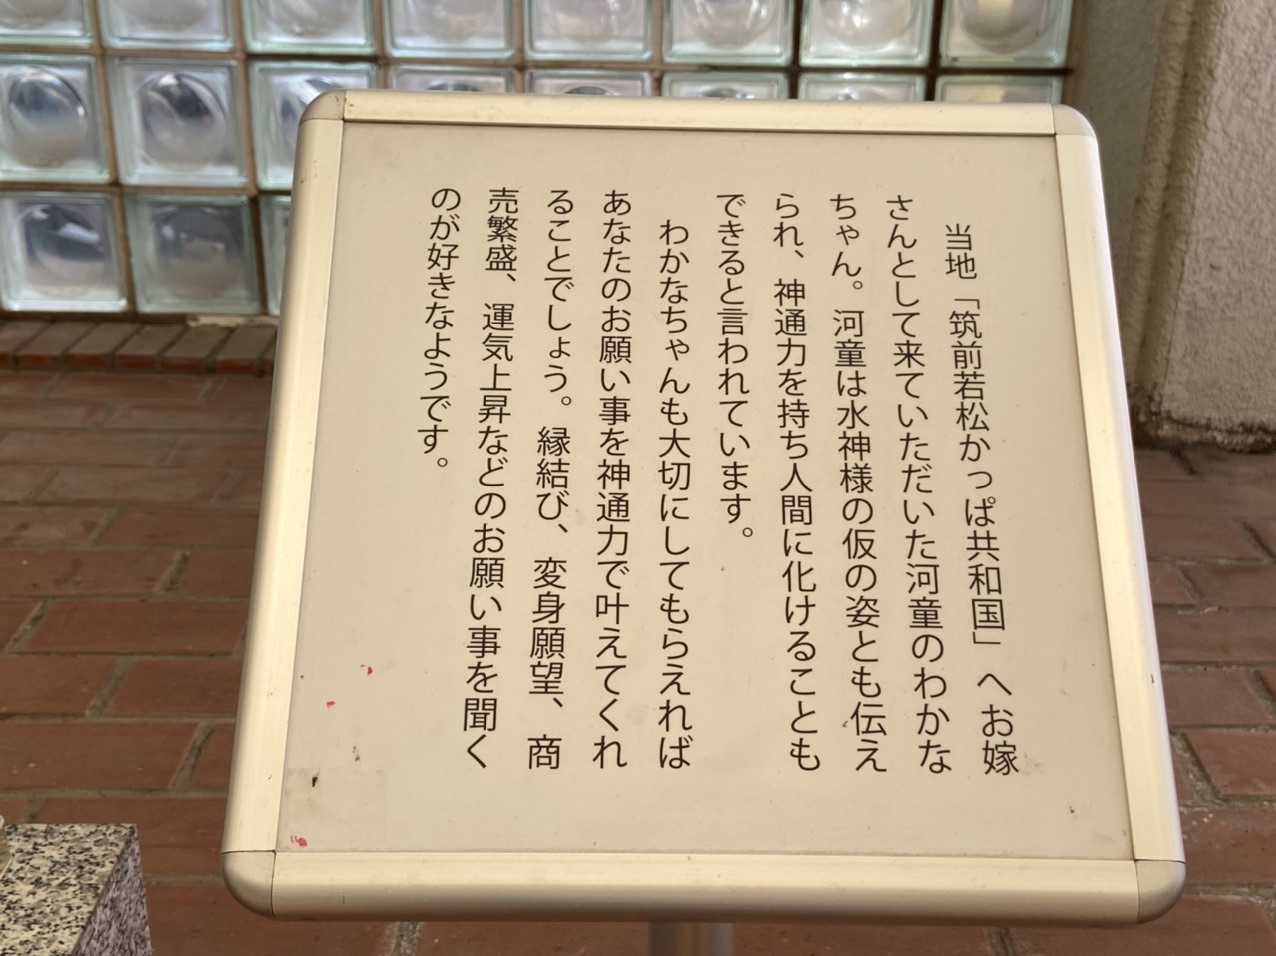 当地「筑前若松かっぱ共和国」へお嫁
さんとして来ていただいた河童のわかな
ちゃん。河童は水神様の仮の姿とも伝え
られ、神通力を持ち人間に化けることも
できると言われています。
わかなちゃんも大切にしてもらえれば
あなたのお願い事を神通力で叶えてくれ
ることでしょう。縁結び、変身願望、商
売繁盛、運気上昇などのお願い事を聞く
のが好きなようです。